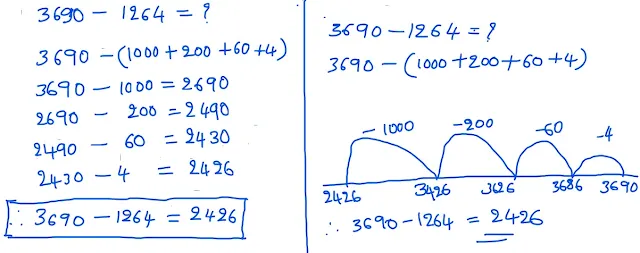 3690 - 1264 = ?
3690 - (1000 + 200 + 60 + 4)
3690 - 1000 = 2690
2690 - 200 = 2490
2490 - 60 = 2430
2430 - 4 = 2426
∴ 3690 - 1264 = 2426
3690 - 1264 = ?
3690 - (1000 + 200 + 60 + 4)
-1000 -200 -60 -4
2426 3426 3626 3686 3690
∴ 3690 - 1264 = 2426